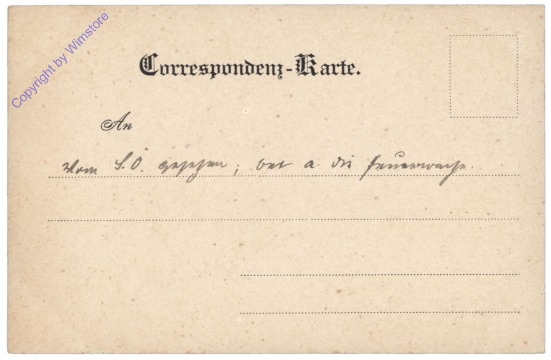 Copyright by Wimstore
Correspondenz-Karte.
An
Vom S.O. gesehen, bei a. die Feuerwache.